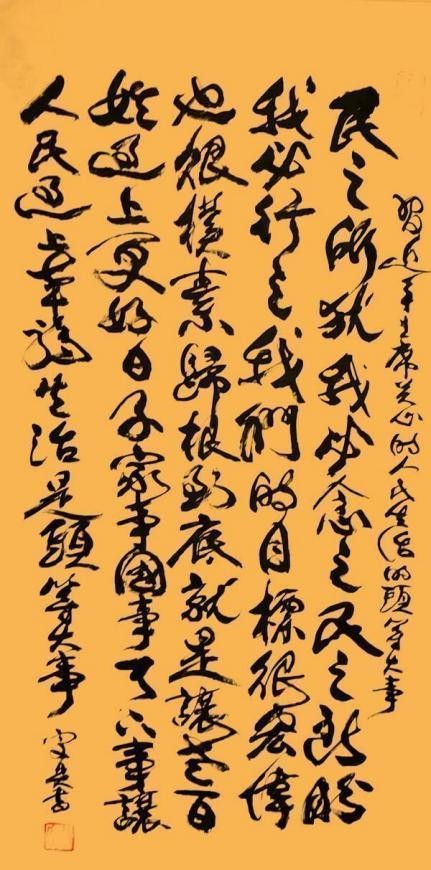 習近平主席关心的人民生活的頭等大事
民之所忧我必念之民之所盼
我必行之我們的目標很宏偉
也很樸素歸根到底就是讓老百
姓過上更好日子家事國事天下事讓
人民過上幸福生活是頭等大事